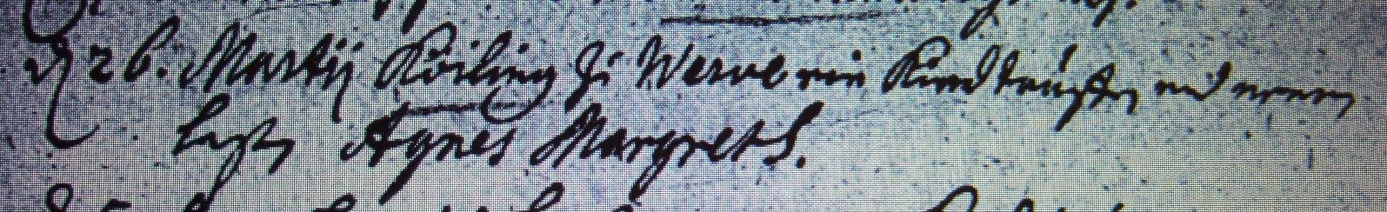 d 26. Martij Köiling Zu Werve ein Kind tauffen und nennen
laßen Agnes Margreth.